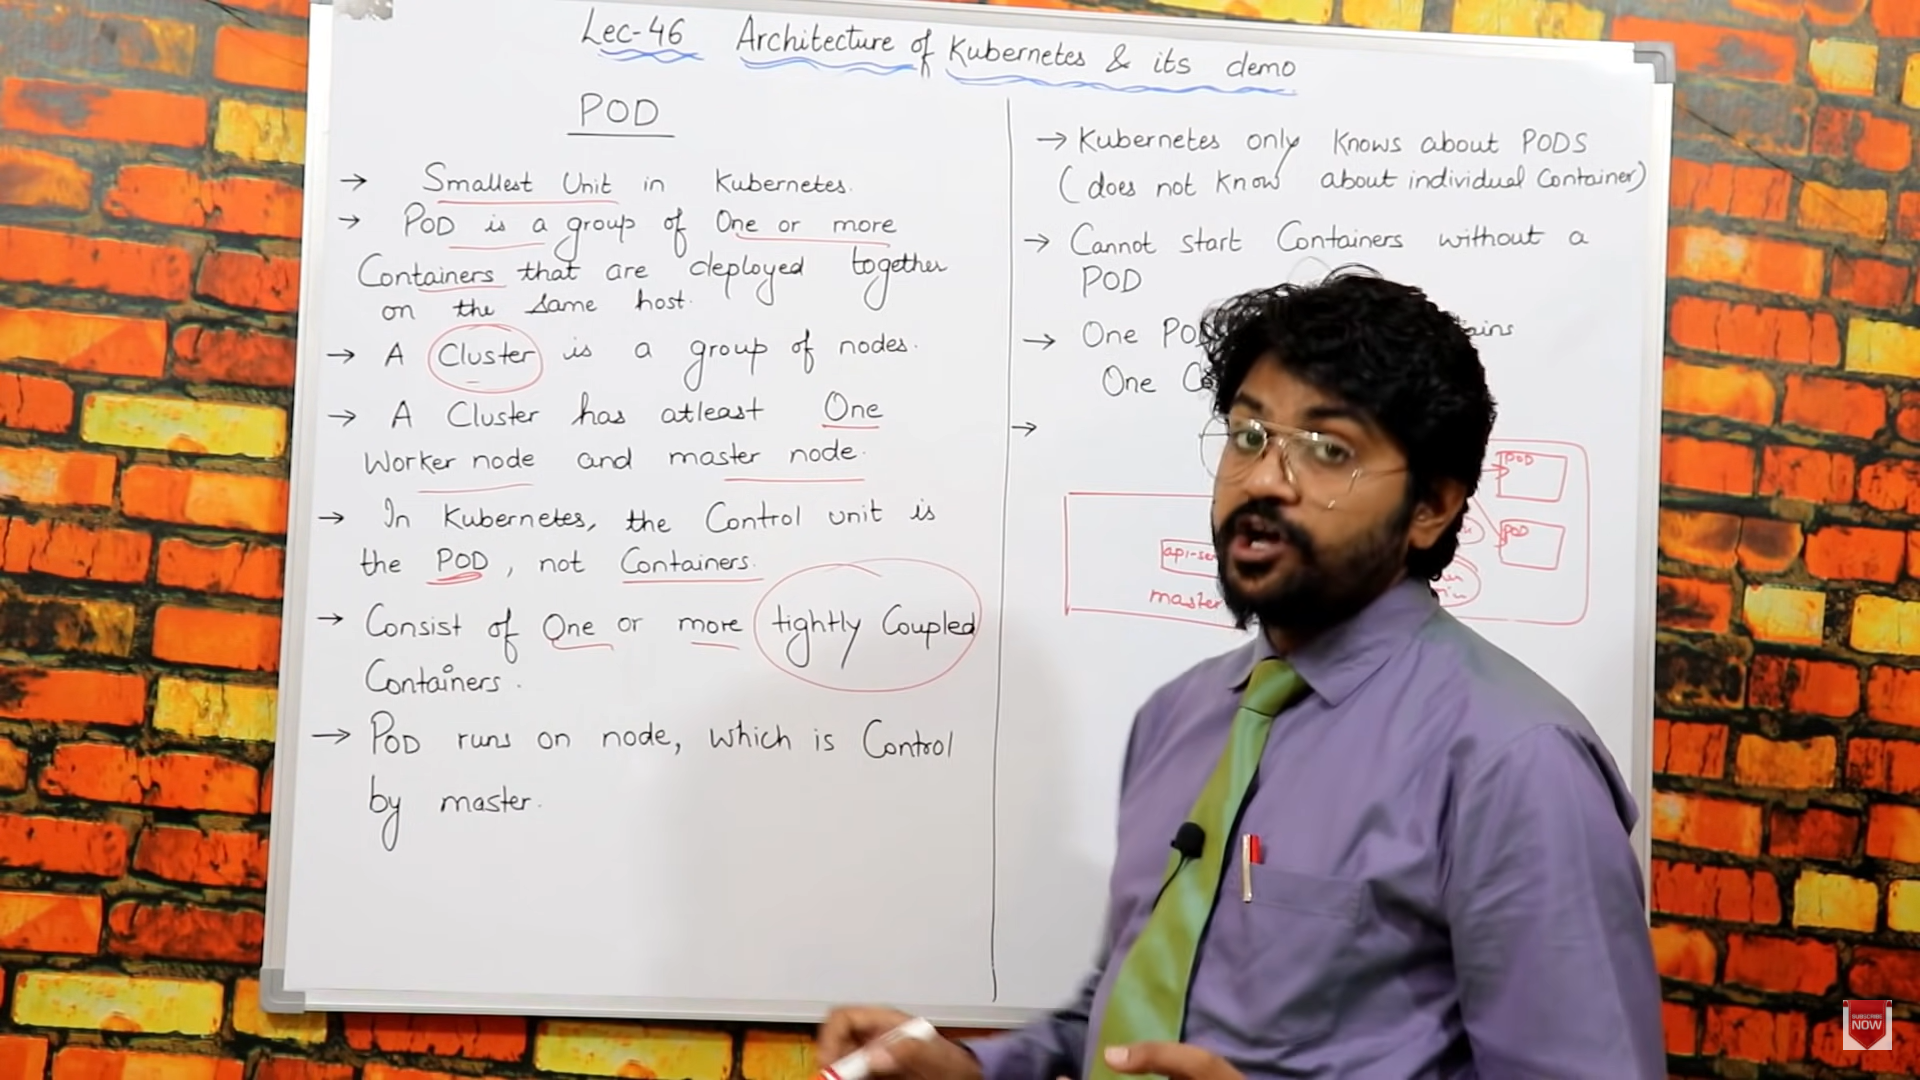 Lec-46 Architecture of Kubernetes & its demo
POD
→ Smallest Unit in Kubernetes.
→ POD is a group of One or more
Containers that are deployed together
on the same host.
→ A Cluster is a group of nodes.
→ A Cluster has atleast One
Worker node and master node.
→ In Kubernetes, the Control unit is
the POD, not Containers.
→ Consist of One or more tightly Coupled
Containers.
→ POD runs on node, which is Control
by master.
→ Kubernetes only knows about PODS
(does not know about individual Container)
→ Cannot start Containers without a
POD
→ One
One
→
POD
POD
master
SUBSCRIBE
NOW